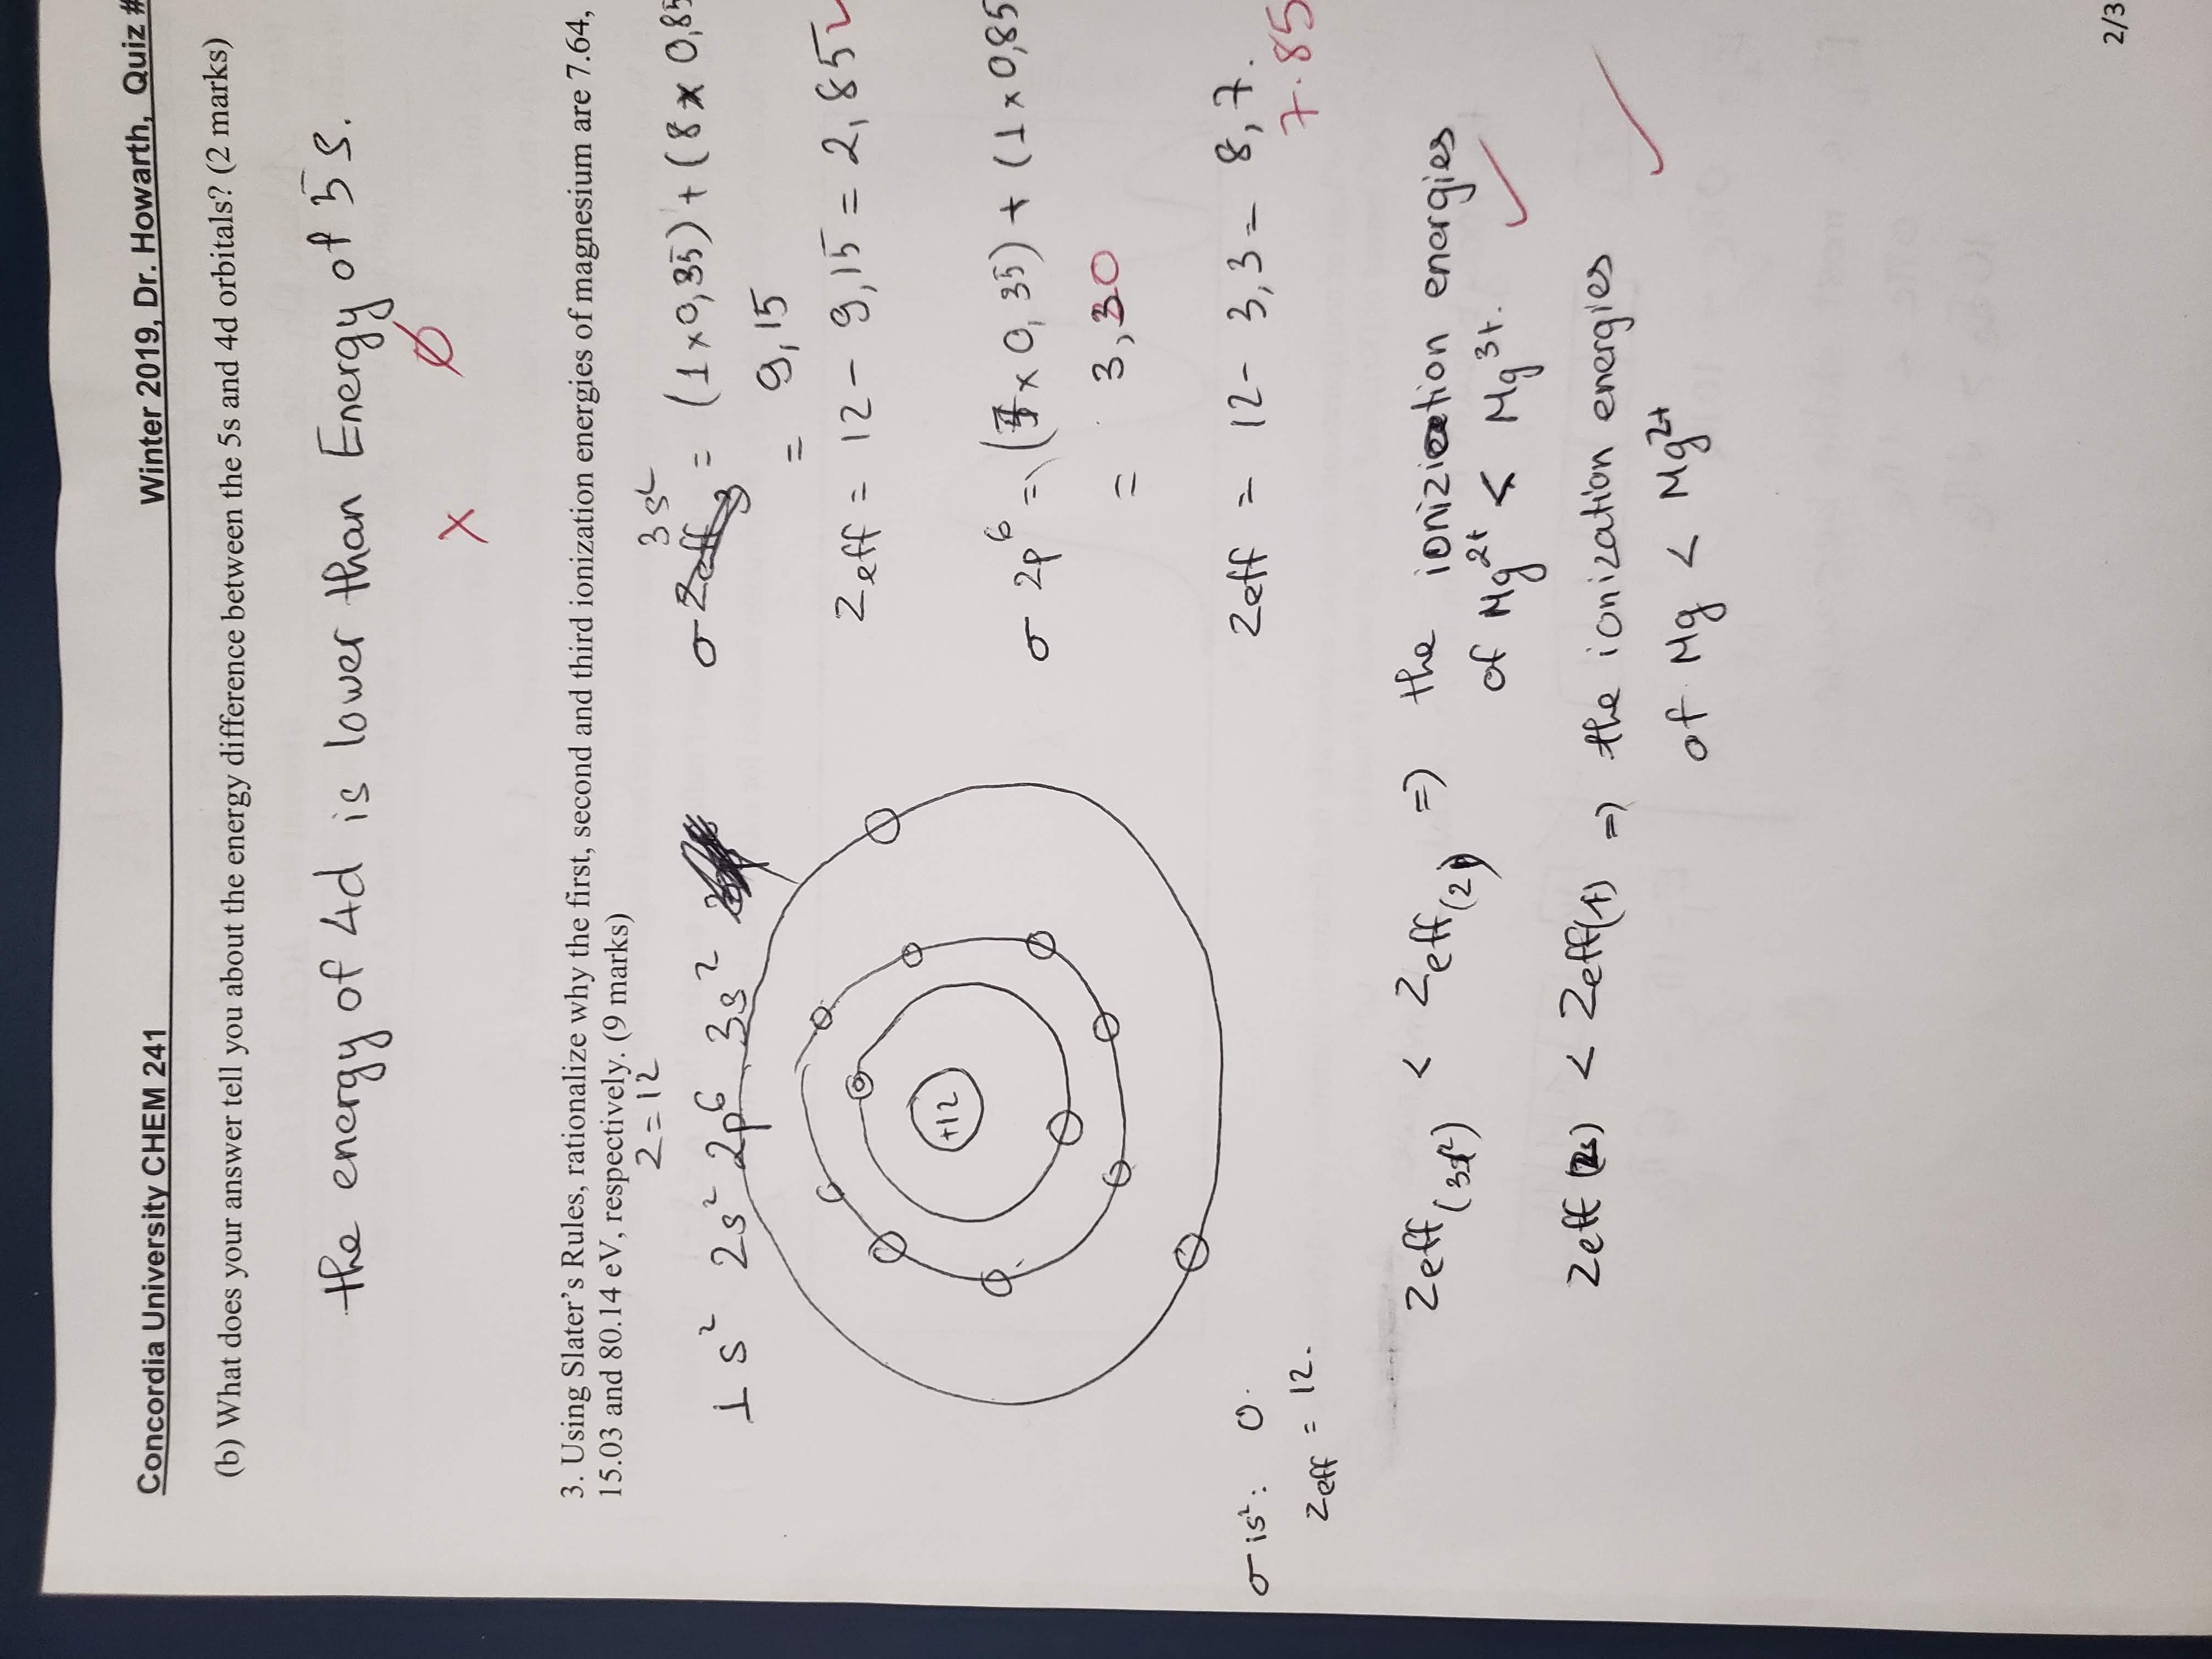 Concordia University CHEM 241 Winter 2019, Dr. Howarth, Quiz #
(b) What does your answer tell you about the energy difference between the 5s and 4d orbitals? (2 marks)
the energy of 4d is lower than Energy of 5s.
x
3. Using Slater's Rules, rationalize why the first, second and third ionization energies of magnesium are 7.64,
15.03 and 80.14 eV, respectively. (9 marks)
Z = 12
1s² 2s² 2p⁶ 3s²
+12
σ 3s² = (1 x 0,35) + (8 x 0,85
= 9,15
Zeff = 12 - 9,15 = 2,85
σ 2p⁶ => ( x 0,35) + (1 x 0,85
= 3,30
Zeff = 12 - 3,3 = 8,7.
7.85
σ 1s²: 0.
Zeff = 12.
Zeff (3s²) < Zeff (2) => the ionization energies
of Mg²⁺ < Mg³⁺.
Zeff (2s) < Zeff(1) => the ionization energies
of Mg < Mg²⁺
2/3